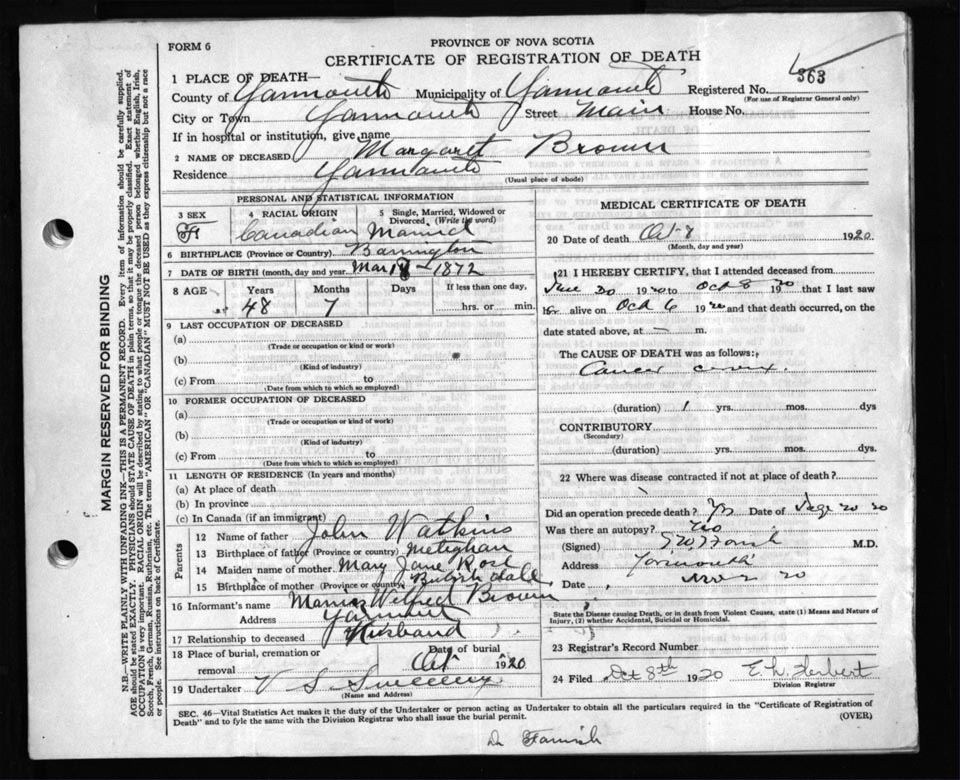 FORM 6
PROVINCE OF NOVA SCOTIA
CERTIFICATE OF REGISTRATION OF DEATH
363
1 PLACE OF DEATH—
County of Yarmouth Municipality of Yarmouth Registered No.
(For use of Registrar General only)
City or Town Yarmouth Street Main House No.
If in hospital or institution, give name
2 NAME OF DECEASED Margaret Brown
Residence Yarmouth
(Usual place of abode)
PERSONAL AND STATISTICAL INFORMATION
3 SEX 4 RACIAL ORIGIN 5 Single, Married, Widowed or Divorced. (Write the word)
F Canadian Married
6 BIRTHPLACE (Province or Country) Barrington
7 DATE OF BIRTH (month, day and year) Mar 1872
8 AGE Years Months Days If less than one day,
48 7 hrs. or min.
9 LAST OCCUPATION OF DECEASED
(a)
(Trade or occupation or kind or work)
(b)
(Kind of industry)
(c) From to
(Date from which to which so employed)
10 FORMER OCCUPATION OF DECEASED
(a)
(Trade or occupation or kind of work)
(b)
(Kind of industry)
(c) From to
(Date from which to which so employed)
11 LENGTH OF RESIDENCE (In years and months)
(a) At place of death
(b) In province
(c) In Canada (if an immigrant)
Parents
12 Name of father John Watkins
13 Birthplace of father (Province or country) Meteghan
14 Maiden name of mother Mary Jane Rose
15 Birthplace of mother (Province or country)
16 Informant's name Wilfred Brown
Address Yarmouth
17 Relationship to deceased Husband
18 Place of burial, cremation or removal Date of burial
Oct 1920
19 Undertaker V S Sweeney
(Name and Address)
MEDICAL CERTIFICATE OF DEATH
20 Date of death Oct 8 1920
(Month, day and year)
21 I HEREBY CERTIFY, that I attended deceased from
1920 to Oct 8 1920 that I last saw
h alive on Oct 6 1920 and that death occurred, on
date stated above, at — m.
The CAUSE OF DEATH was as follows:
Cancer cervix.
(duration) 1 yrs. mos. dys
CONTRIBUTORY
(Secondary)
(duration) yrs. mos. dys
22 Where was disease contracted if not at place of death?
Did an operation precede death? Yes Date of 20
Was there an autopsy? No
(Signed) M.D.
Address Yarmouth
Date 20
State the Disease causing Death, or in death from Violent Causes, state (1) Means and Nature of Injury, (2) whether Accidental, Suicidal or Homicidal.
23 Registrar's Record Number
24 Filed Oct 8th 1920 E. W. Herbert
Division Registrar
SEC. 46—Vital Statistics Act makes it the duty of the Undertaker or person acting as Undertaker to obtain all the particulars required in the "Certificate of Registration of
Death" and to fyle the same with the Division Registrar who shall issue the burial permit. (OVER)
MARGIN RESERVED FOR BINDING
N.B.—WRITE PLAINLY WITH UNFADING INK—THIS IS A PERMANENT RECORD. Every item of information should be carefully supplied.
AGE should be stated EXACTLY. PHYSICIANS should STATE CAUSE OF DEATH in plain terms, so that it may be properly classified. Exact statement of
OCCUPATION is very important. RACIAL ORIGIN will be described by stating to what people or tongue the deceased person belonged whether English, Irish,
Scotch, French, German, Russian, Ruthenian, etc. The terms "AMERICAN" OR "CANADIAN" MUST NOT BE USED as they express citizenship but not a race
or people. See instructions on back of Certificate.